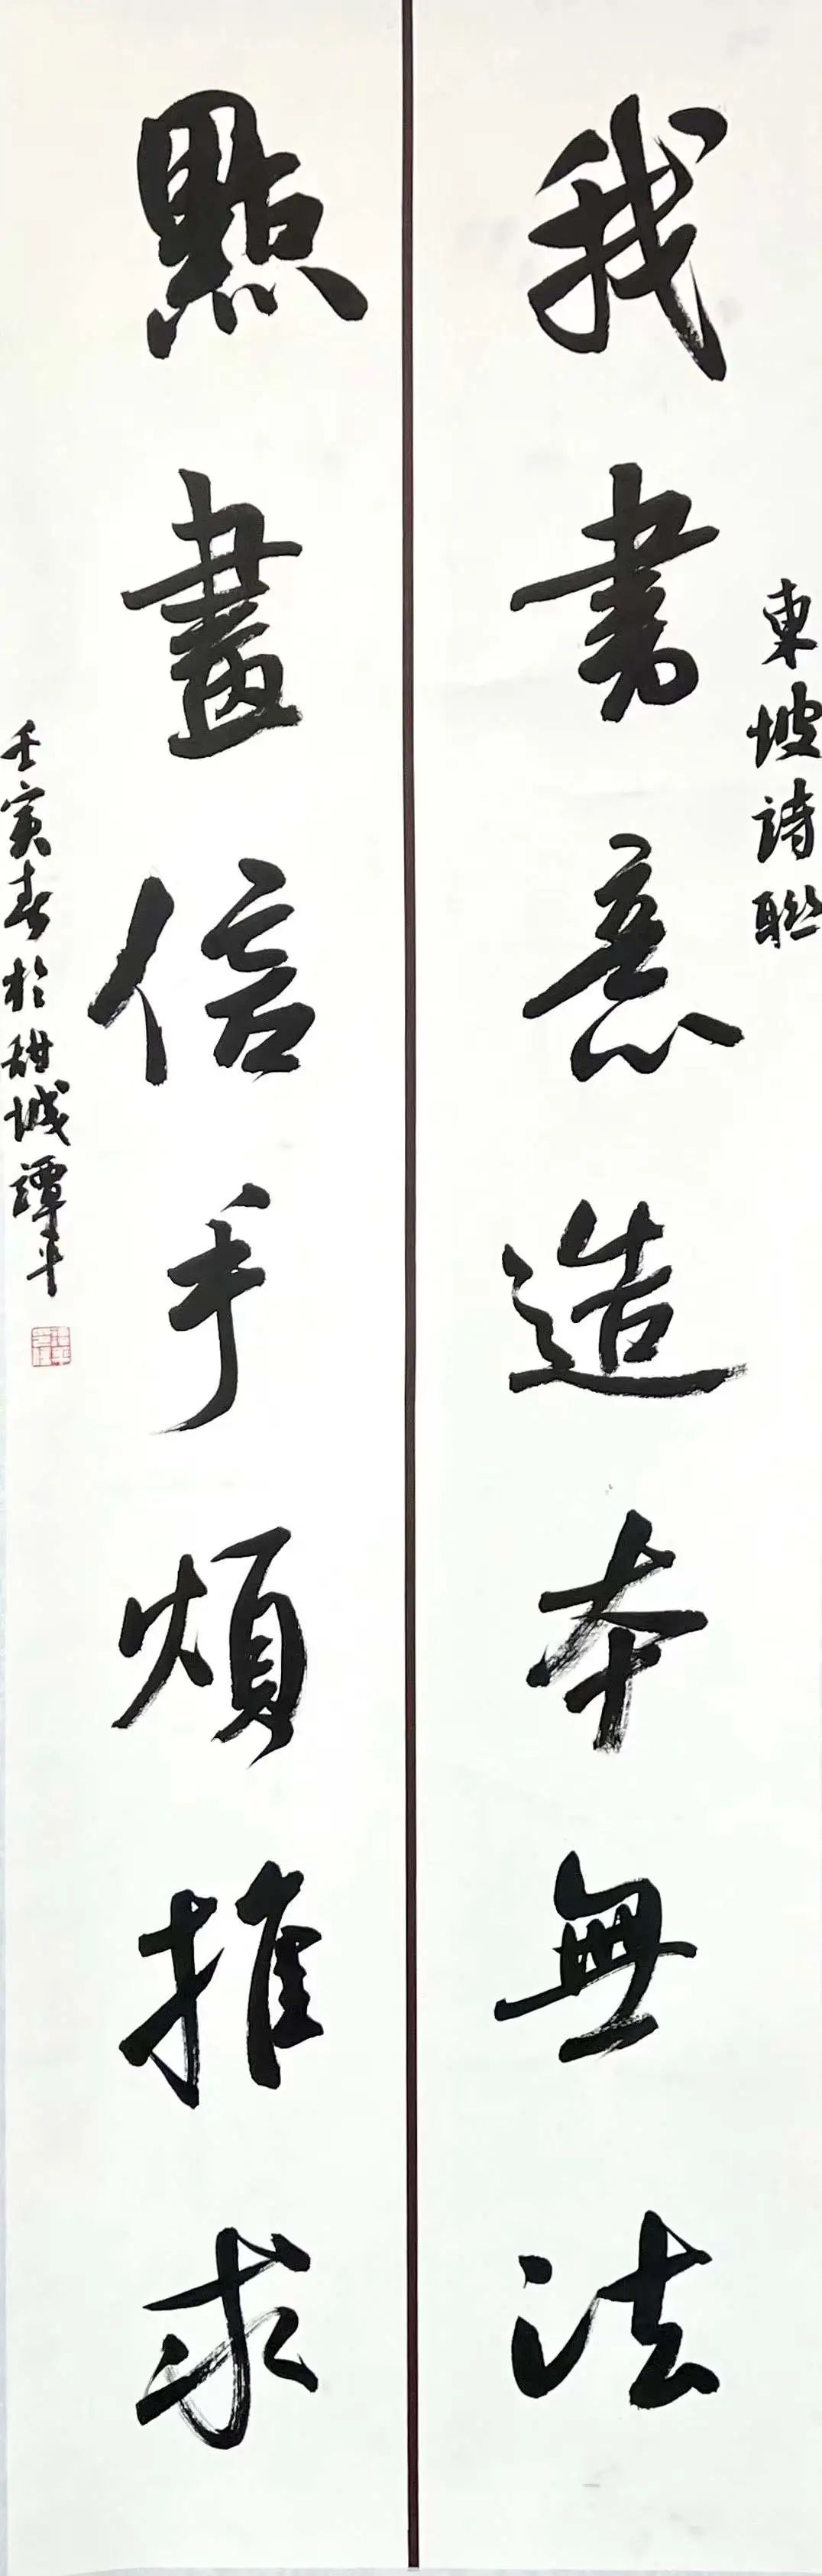 東坡詩聯
我書意造本無法
點畫信手煩推求
壬寅春於甜城譚平